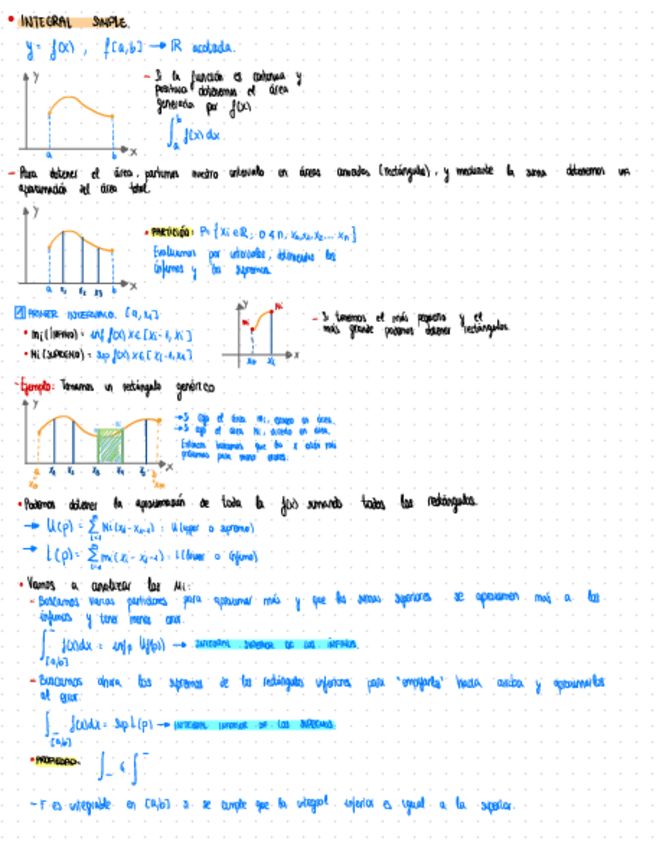 • INTEGRAL SIMPLE.
y = f(x) , f[a,b] → ℝ acotada.
- Si la función es continua y
positiva obtenemos el área
generada por f(x)
∫_a^b f(x) dx
y
a b x
- Para obtener el área, partimos nuestro intervalo en áreas (rectángulo), y mediante la suma obtenemos un
aproximación del área total.
y
a x₁ x₂ x₃ b x
• PARTICIÓN: P = {xi ∈ ℝ; x₀, x₁, x₂ ... xn}
Evaluamos por intervalos, obteniendo los
ínfimos y los supremos.
PRIMER INTERVALO. [a, x₁]
• mi (ÍNFIMO) = inf f(x) x∈[xi-1, xi]
• Mi (SUPREMO) = sup f(x) x∈[xi-1, xi]
y Mi
mi
x₀ x₁ x
- Si tenemos el más pequeño y el
más grande podemos obtener rectángulos.
- Ejemplo: Tomamos un rectángulo genérico
y
→ Si cojo el área mi, en área.
→ Si cojo el área Mi, en área.
x
• Podemos obtener la aproximación de toda la f(x) sumando todos los rectángulos.
→ U(p) = Σ Mi (xi - xi-1) : U (upper o supremo)
→ L(p) = Σ mi (xi - xi-1) : L (lower o ínfimo)
• Vamos a analizar las Mi:
- Buscamos varias particiones para aproximar más y que las sumas superiores se aproximen más a los
ínfimos y tener menos error.
∫_[a,b] f(x)dx = inf U(f(p)) → INTEGRAL SUPERIOR DE LOS ÍNFIMOS.
- Buscamos ahora los supremos de los rectángulos inferiores para "empujarlos" hacia arriba y aproximarlos
al error.
∫_[a,b] f(x)dx = sup L(p) → INTEGRAL INFERIOR DE LOS SUPREMOS
• PROPIEDAD: ∫_ ≤ ∫¯
- F es integrable en [a,b] si se cumple que la integral inferior es igual a la superior.